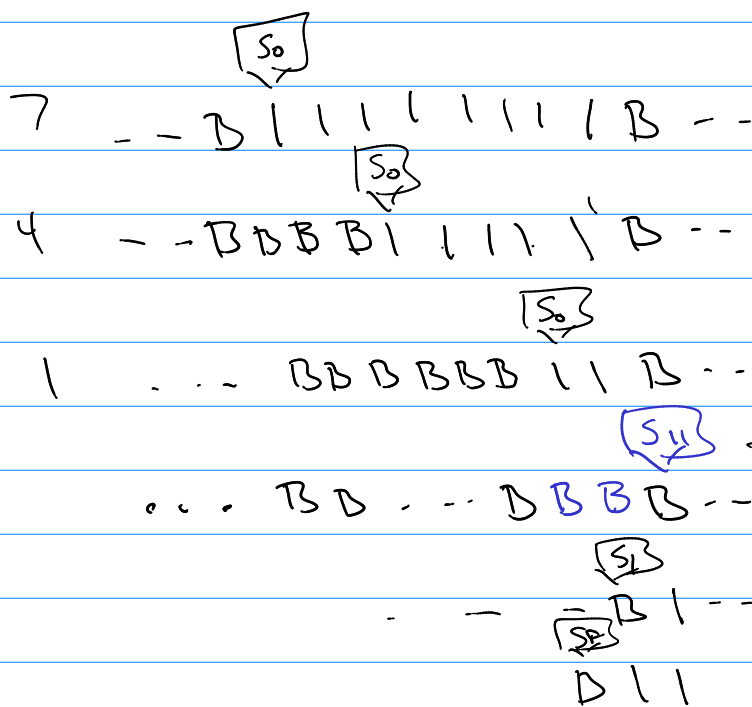 S₀
7 -- B | | | | | | | | B --
S₀
4 -- B B B B | | | | | B --
S₀
1 ... B B B B B B | | B --
S₁₁
... B B ... B B B B --
S₁
. - - B | --
B | |